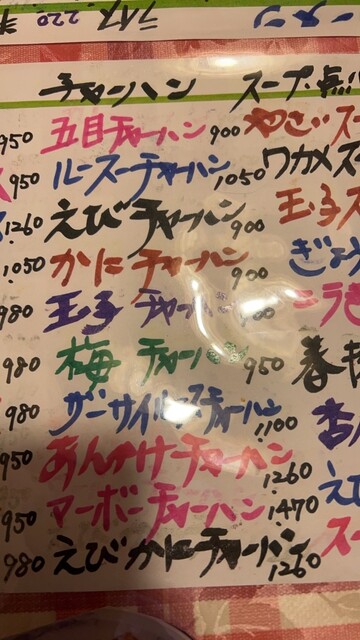 ライス 220
ーメン
チャーハン スープ・点
950 五目チャーハン 900 やさいス
950 ルースーチャーハン 1050 ワカメス
1260 えびチャーハン 900 玉子ス
1050 かにチャーハン 900 ぎょう
980 玉子チャーハン
980 梅チャーハン 950 春
980 ザーサイルースチャーハン 1100 杏
950 あんかけチャーハン 1260 え
950 マーボーチャーハン 1470 スー
980 えびかにチャーハン 1260